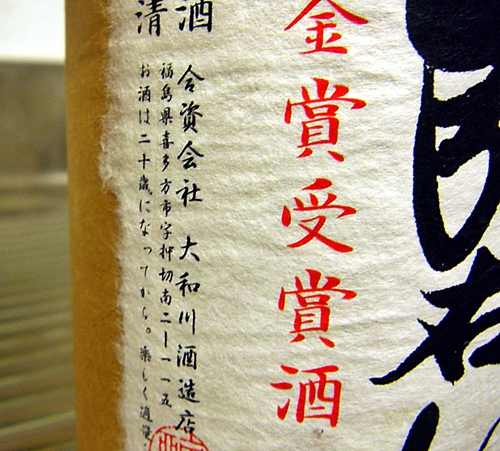 金賞受賞酒
清酒
合資会社 大和川酒造店
福島県喜多方市字押切南二ー一一五
お酒は二十歳になってから。楽しく適量